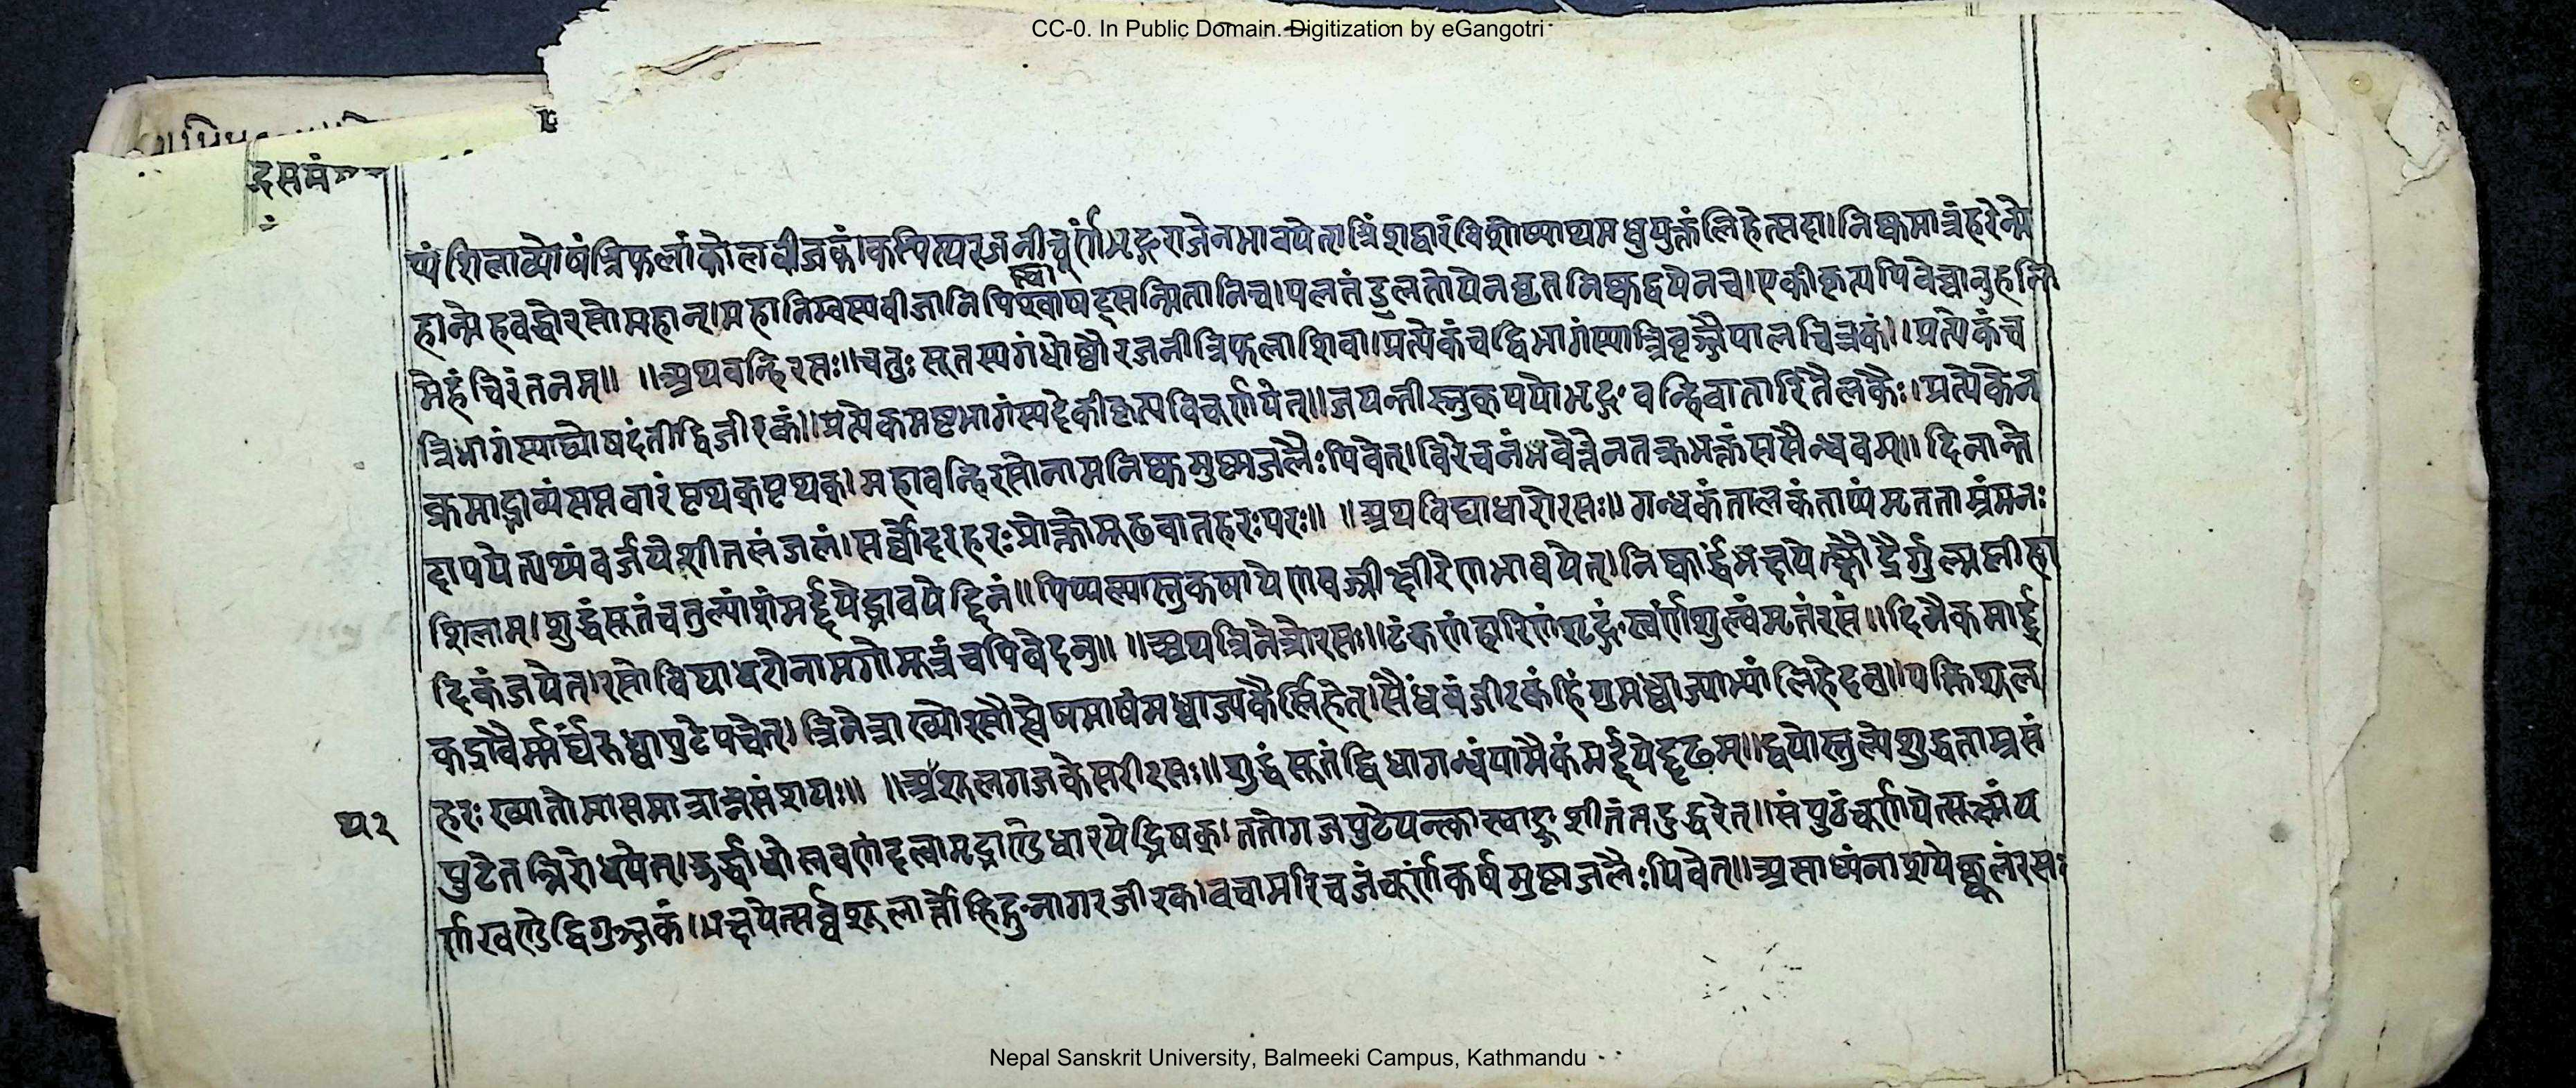 CC-0. In Public Domain. Digitization by eGangotri
दसमं
प्यं शिलाव्योषंत्रिफलांकोलवीजकं।कपित्परजनीचूर्णंभृङ्गराजेनभावयेत।त्रिंशद्वारंविशोष्याथमधुयुक्तंलिहेत्सदा।निष्कमात्रंहरेन्मे
हान्मेहवद्धोरसोमहान्।महानिम्वस्यवीजानि षट्सन्मितानिच।पलतंडुलतोयेनघृतनिष्कद्वयेनच।एकीकृत्यपिवेच्चानुहन्ति
मेहंचिरंतनम्॥ ॥अथवन्हिरसः॥चतुः सूतस्यगंधोष्टौरजनीत्रिफलाशिवा।प्रत्येकंचद्विभागंस्यात्त्रिवृज्जैपालचित्रकं।।प्रत्येकंच
त्रिभागंस्याद्योषदंतीद्विजीरकं॥प्रत्येकमष्टभागंस्यदेकीकृत्यविचूर्णयेत्॥जयन्तीस्नुक्पयोभृङ्ग वन्हिवातारितैलकैः।प्रत्येकेन
क्रमाद्भाव्यंसप्तवारंपृथक्पृथक।महावन्हिरसोनामनिष्कमुष्णजलैःपिवेत्।विरेचनंभवेत्तेनतक्रभक्तंससैन्धवम्॥दिनान्ते
दापयेत्पथ्यंवर्जयेशीतलंजलं।सर्व्वोदरहरःप्रोक्तोमूढवातहरःपरः॥ ॥अथविद्याधारोरसः॥गन्धकंतालकंताप्यंमृतताम्रंमनः
शिलाम्।शुद्धंसूतंचतुल्यांशंमर्द्दयेद्भावयेद्दिनं॥पिप्पल्यास्तुकषायेणवज्रीक्षीरेणभावयेत्।निष्कार्द्धंभक्षयेत्क्षौद्रैर्गुल्मप्लीहा
दिकंजयेत।रसोविद्याधरोनामगोमूत्रंचपिवेदनु॥ ॥अथत्रिनेत्रोरसः॥टंकणंहारिणंशृङ्गंस्वर्णंशुल्वंमृतंरसं॥दिनैकमार्द्र
कद्रावैर्मर्म्मर्घंरुध्वापुटेपचेत्।त्रिनेत्राख्योरसौह्येषमाषंमध्वाज्यकैर्लिहेत्।सैंधवंजीरकंहिंगुमध्वाज्याभ्यांलिहेदनु॥पक्तिशूल
हरःख्यातोमासमात्रान्नसंशयः॥ ॥अशूलगजकेसरीरसः॥शुद्धंसूतंद्विधागन्धंयामैकंमर्द्दयेद्दृढम्॥द्वयोस्तुल्येशुद्धताम्रसं
५२
पुटेतन्निरोधयेत्।उर्द्धाधोलवणंदत्वामृद्भाण्डेधारयेद्भिषक्।ततोगजपुटेपक्त्वास्वाङ्गशीतंतदुद्धरेत्॥संपुटंचूर्णयेत्सूक्ष्मंप
र्णखण्डेद्विगुञ्जकं।भक्षयेत्सर्व्वशूलार्त्तोहिङ्गुनागरजीरक।वचामरिचजंचूर्णंकर्षमुष्णजलैःपिवेत्॥असाध्यंनाशयेच्छूलंरसः
Nepal Sanskrit University, Balmeeki Campus, Kathmandu